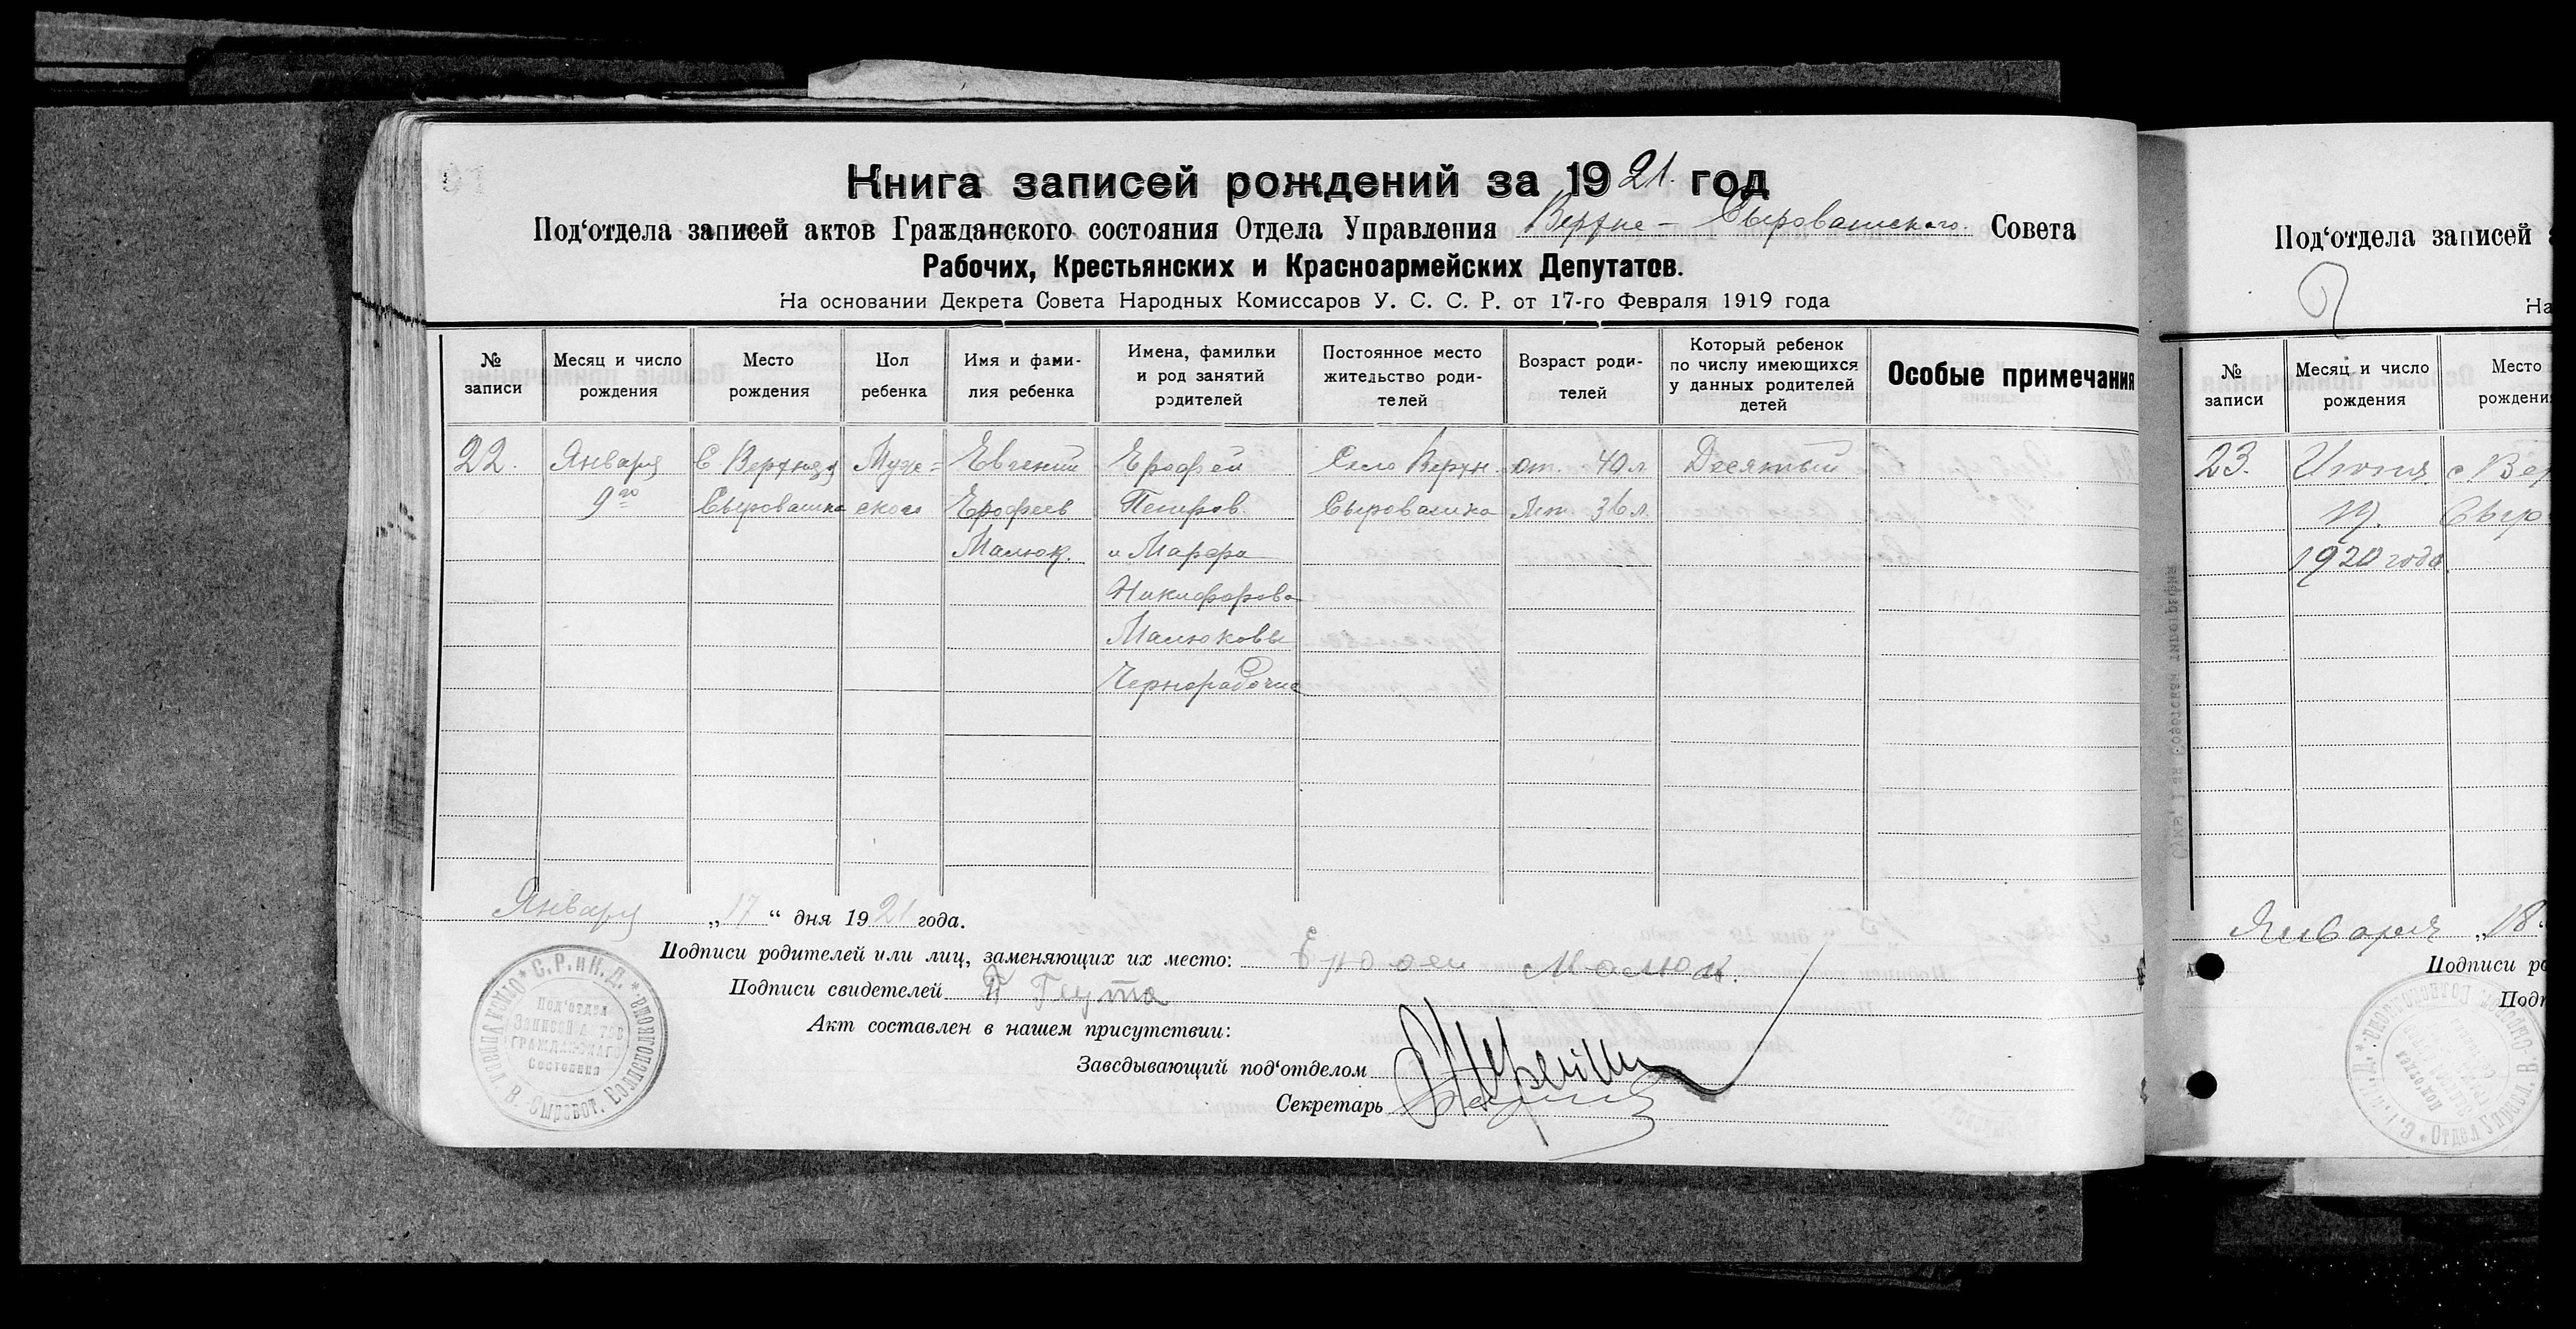 Книга записей рождений за 1921. год
Под‘отдела записей актов Гражданского состояния Отдела Управления Верхне-Сыроватского. Совета
Рабочих, Крестьянских и Красноармейских Депутатов.
На основании Декрета Совета Народных Комиссаров У. С. С. Р. от 17-го Февраля 1919 года
№ записи
Месяц и число рождения
Место рождения
Пол ребенка
Имя и фами-
лия ребенка
Имена, фамилии
и род занятий
родителей
Постоянное место
жительство роди-
телей
Возраст роди-
телей
Который ребенок
по числу имеющихся
у данных родителей
детей
Особые примечания
22. Января С Верхняя Муж= Евгений Ерофей Село Верхн. от. 40 л Десятый
9го Сыроватка ского Ерофеев Петров. Сыроватка Мт 36 л.
Малюк. и Марфа
Никифорова
Малюковы
Чернорабочие
Января „17“ дня 1921 года.
Подписи родителей или лиц, заменяющих их место: Ерофей Малюк.
Подписи свидетелей П Гнута
Акт составлен в нашем присутствии:
Заведывающий под‘отделом
Секретарь
Отдел Управл. В. Сыроват. Волисполкома * С. Р. и К. Д. *
Под‘отдел
Записей актов
Гражданскаго
Состояния
Под‘отдела записей
На
№ записи
Месяц и число рождения
Место
рождени
23. Июня с Вер
17. Сыро
1920 года
Января „18
Подписи ро
Подп